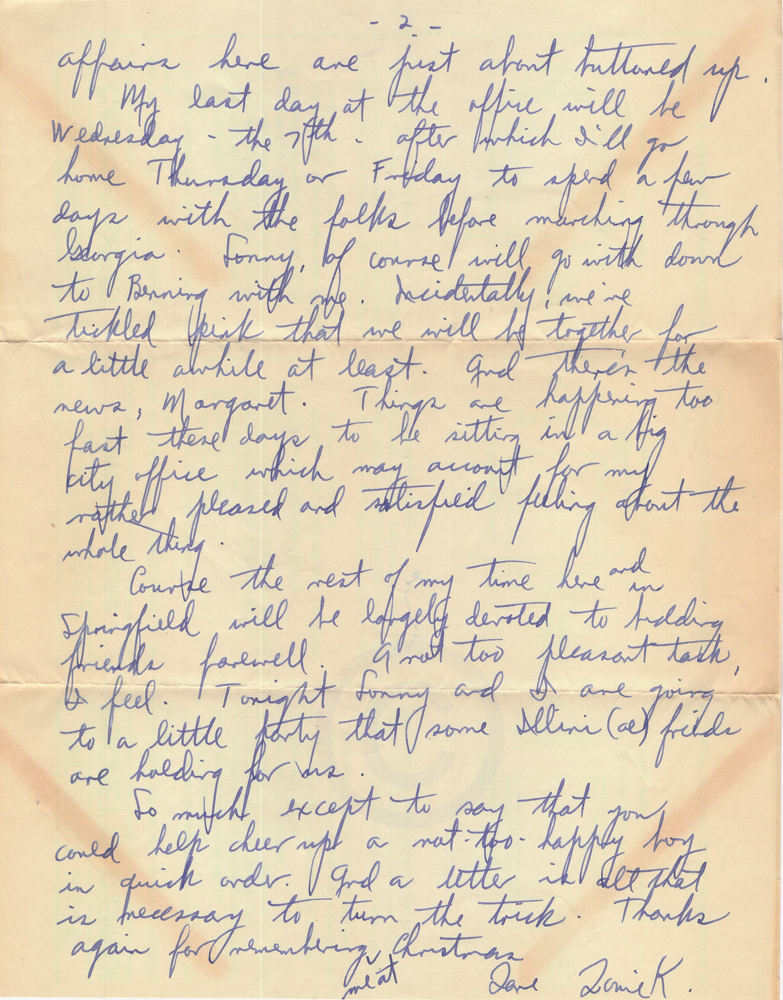 - 2 -
affairs here are just about buttoned up.
My last day at the office will be
Wednesday - the 7th - after which I'll go
home Thursday or Friday to spend a few
days with the folks before marching through
Georgia. Sonny, of course will go with down
to Benning with me. Incidentally, we're
tickled pink that we will be together for
a little awhile at least. And there's the
news, Margaret. Things are happening too
fast these days to be sitting in a big
city office which may account for my
rather pleased and satisfied feeling about the
whole thing.
Course the rest of my time here and in
Springfield will be largely devoted to bidding
friends farewell. A not too pleasant task,
I feel. Tonight Sonny and I are going
to a little party that some Illini (ae) friends
are holding for us.
So much except to say that you
could help cheer up a not-too-happy boy
in quick order. And a letter is all that
is necessary to turn the trick. Thanks
again for remembering me at Christmas
Dave